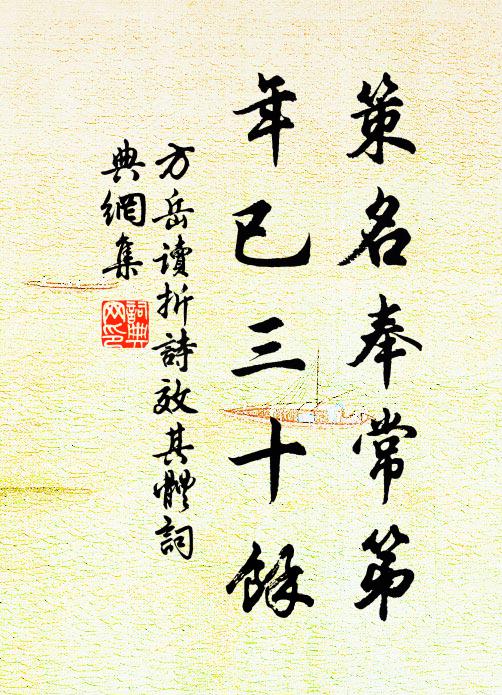 策名奉常第
年已三十餘
方岳讀折詩效其體詞
典網集
詞典
网印